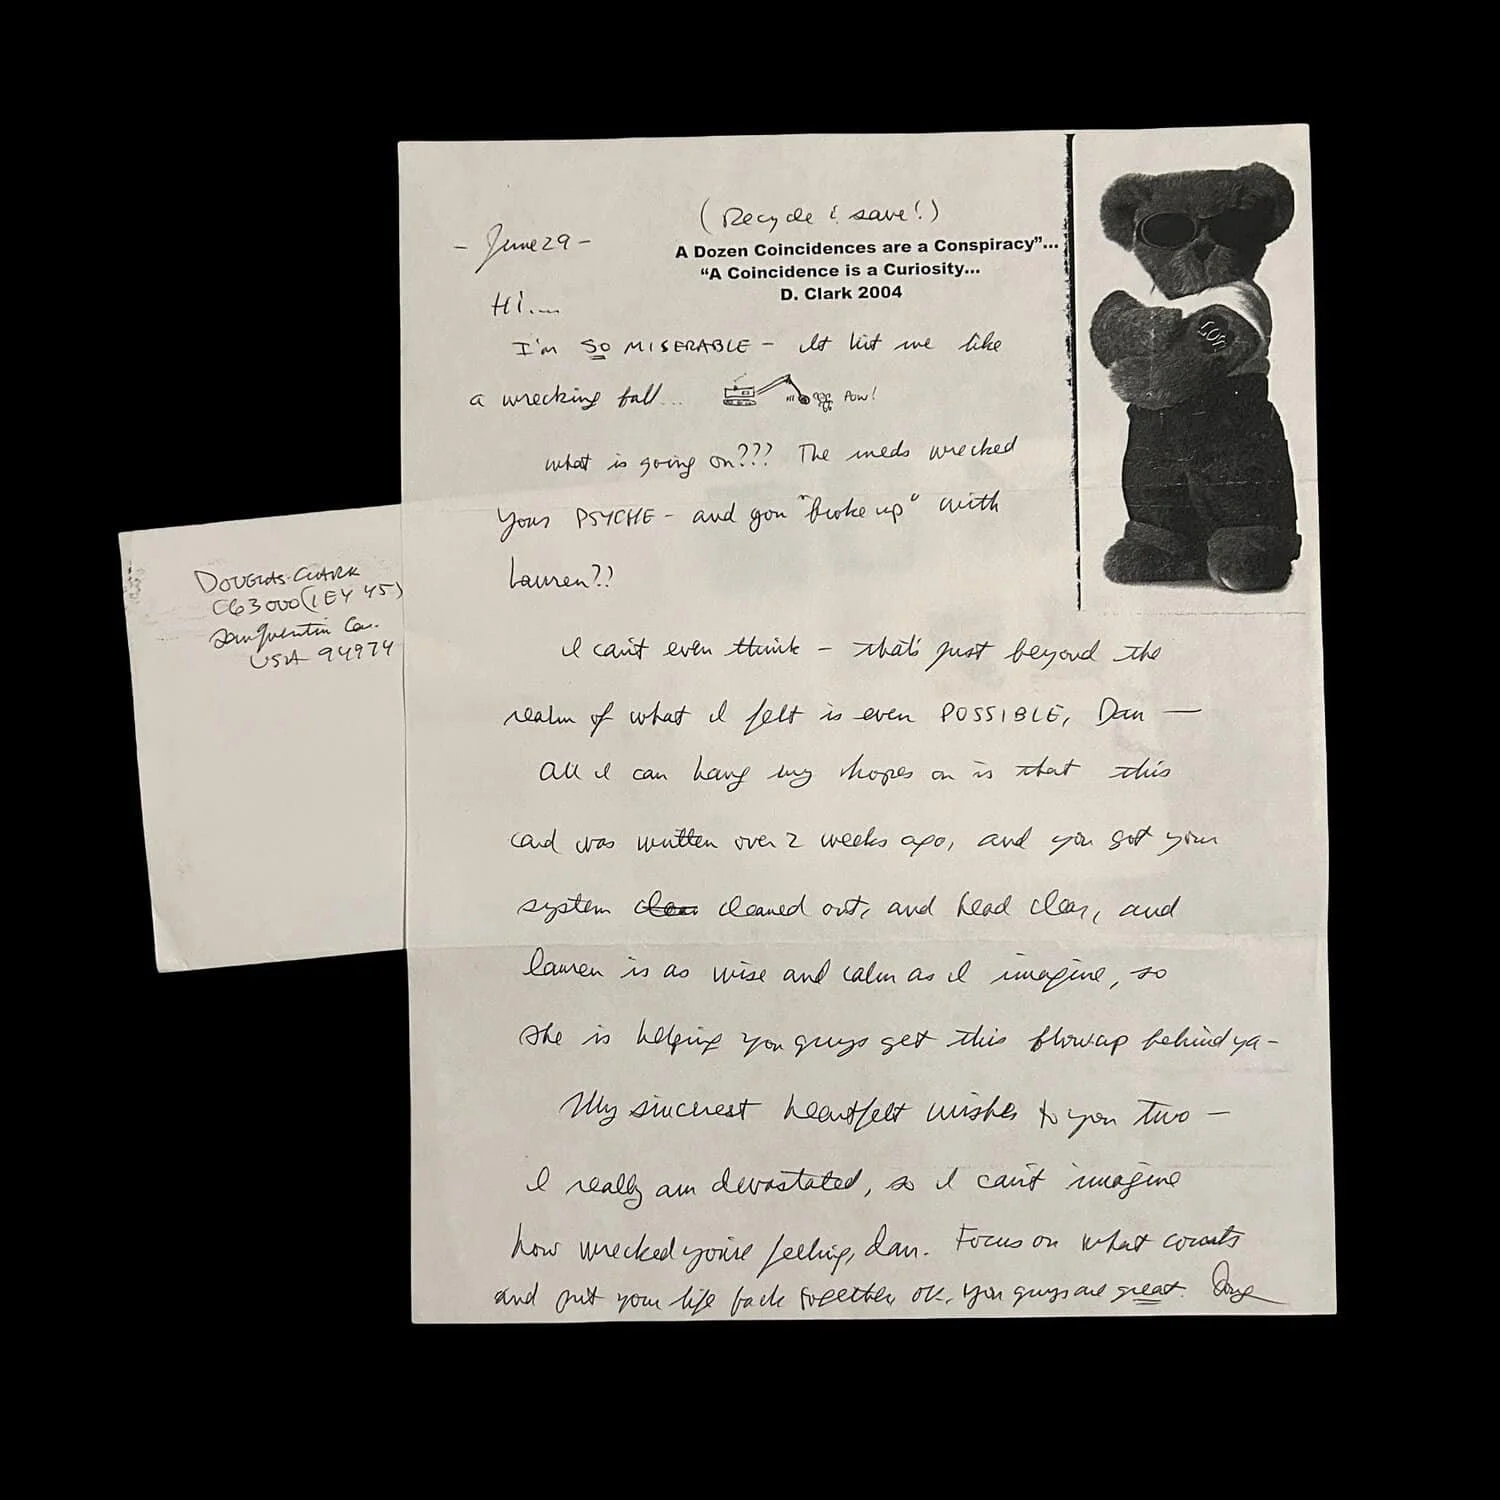 (Recycle & save!)
- June 29 -
A Dozen Coincidences are a Conspiracy"...
"A Coincidence is a Curiosity...
D. Clark 2004
Hi....
I'm SO MISERABLE - It hit me like
a wrecking ball...
POW!
what is going on??? The meds wrecked
your PSYCHE - and you "broke up" with
Lauren??
I can't even think - that's just beyond the
realm of what I felt is even POSSIBLE, Dan —
All I can hang my hopes on is that this
card was written over 2 weeks ago, and you got your
system cleaned out, and head clear, and
Lauren is as wise and calm as I imagine, so
she is helping you guys get this blowup behind ya -
My sincerest heartfelt wishes to you two -
I really am devastated, so I can't imagine
how wrecked you're feeling, Dan. Focus on what counts
and put your life back together, OK, you guys are great. Doug
DOUGLAS CLARK
C63000 (1EY45)
San Quentin Ca.
USA 94974